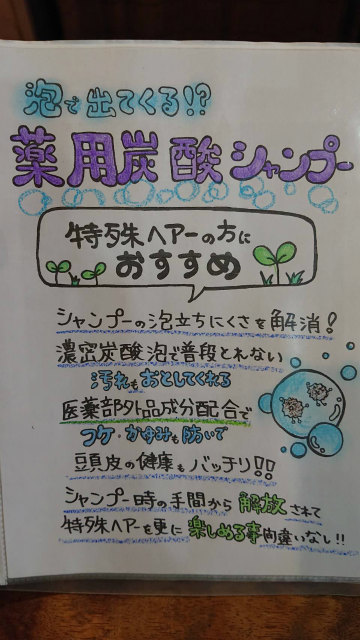 泡で出てくる!?
薬用炭酸シャンプー
特殊ヘアーの方に
おすすめ
シャンプーの泡立ちにくさを解消!
濃密炭酸泡で普段とれない
汚れもおとしてくれる
医薬部外品成分配合で
フケ・かゆみも防いで
頭皮の健康もバッチリ!!
シャンプー時の手間から解放されて
特殊ヘアーを更に楽しめる事間違いなし!!